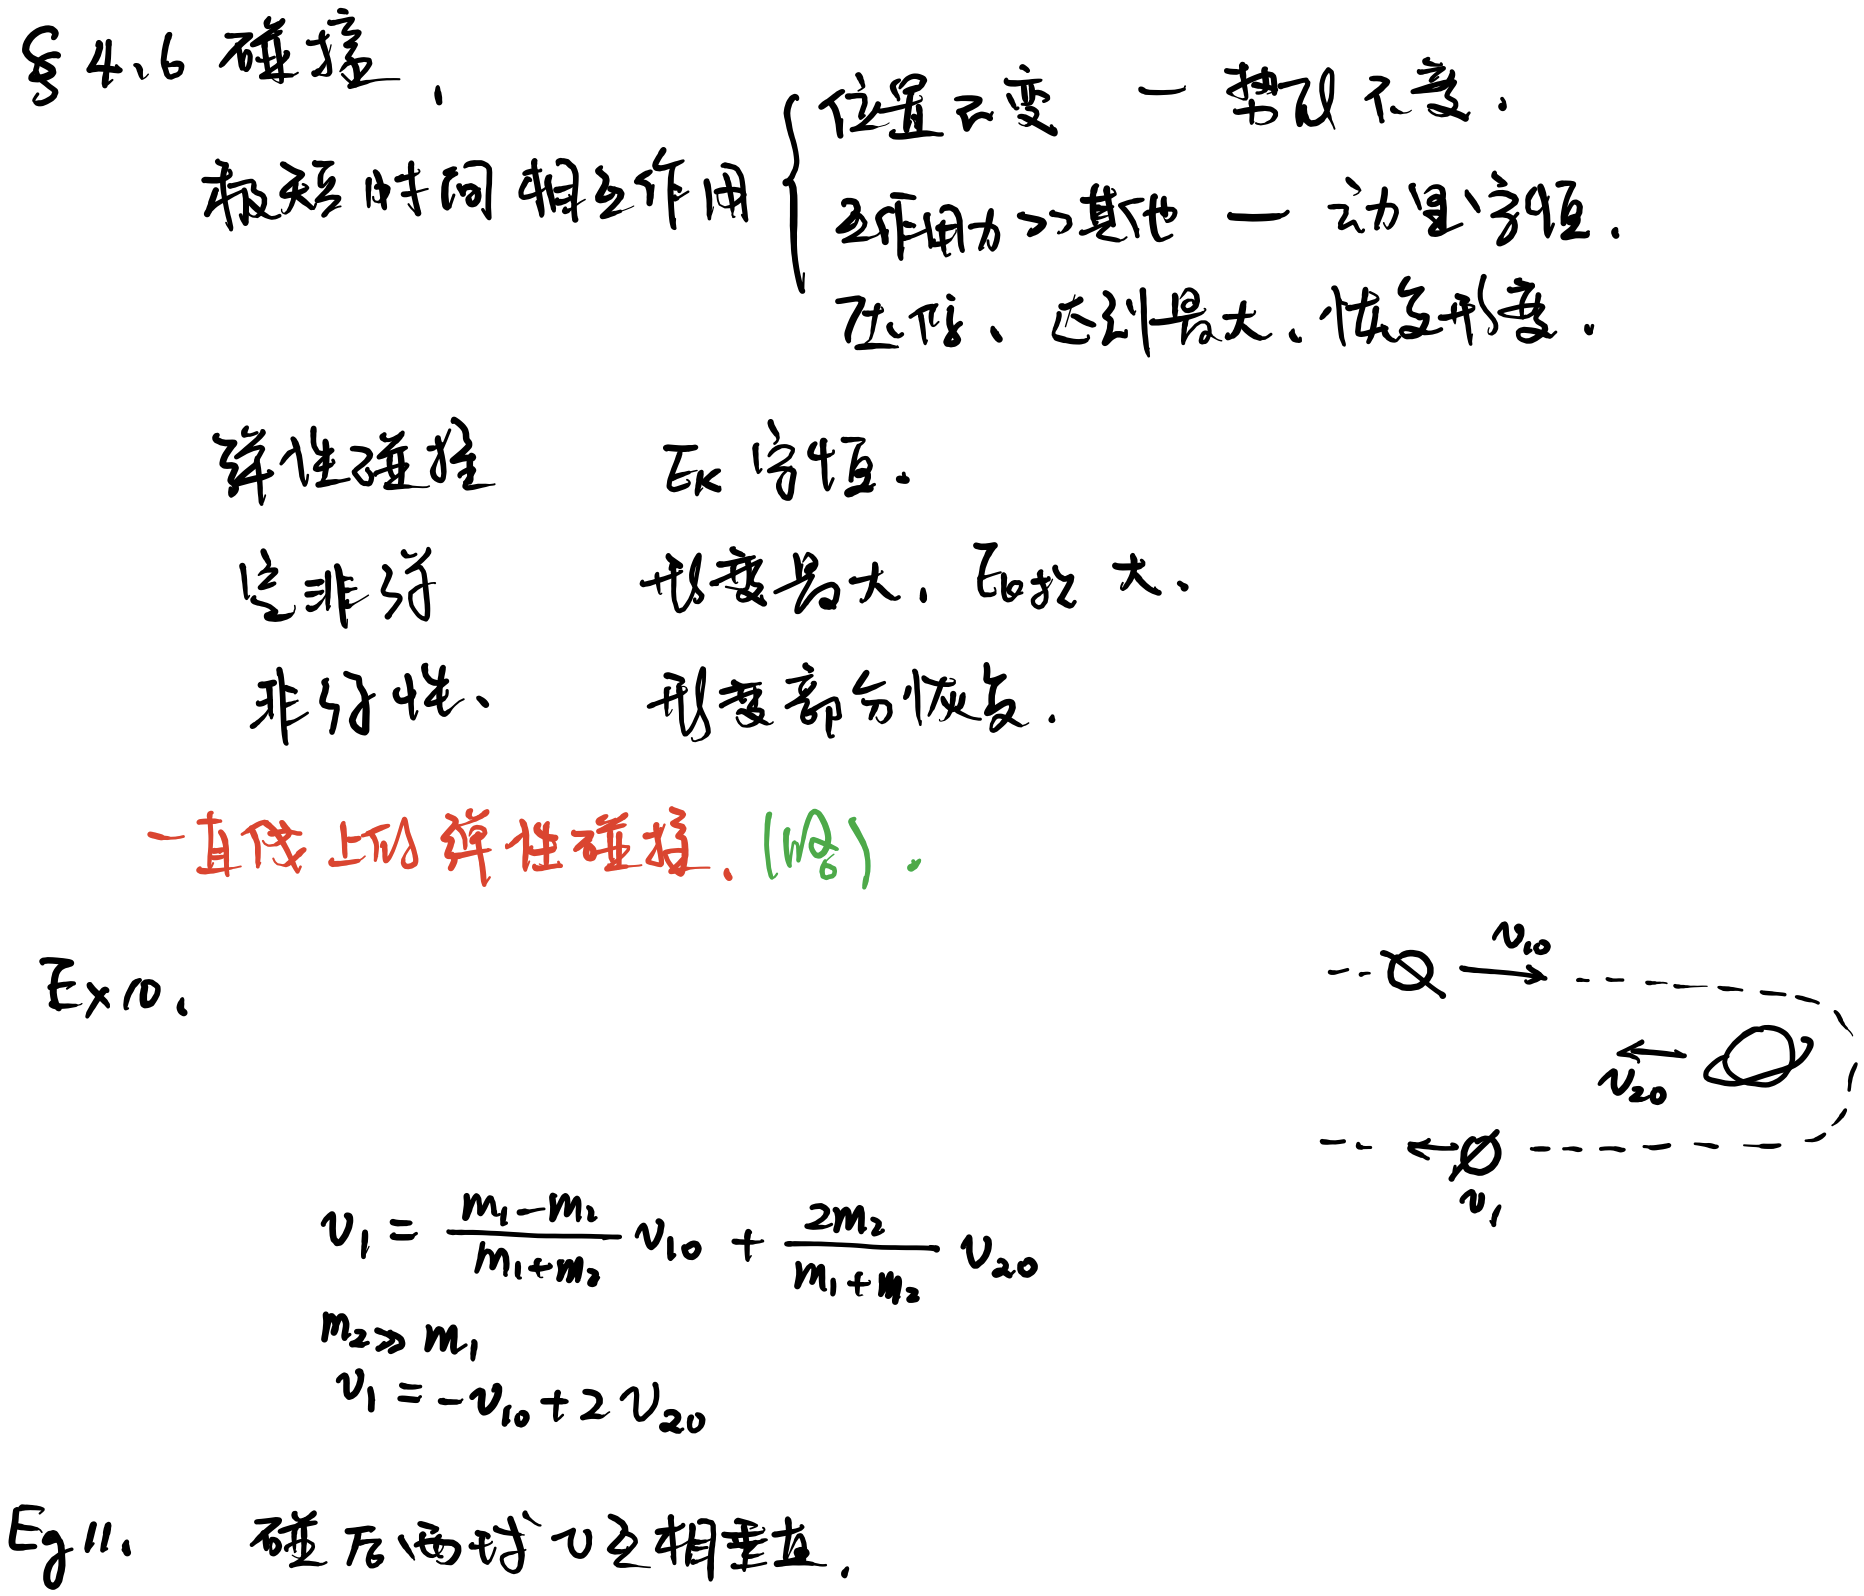 § 4.6 碰撞.
极短时间相互作用
位置不变 — 势能不变.
互作用力>>其他 — 动量守恒.
压缩、达到最大、恢复形变.
弹性碰撞 Ek 守恒.
完非弹 形变最大, Ek损 大.
非弹性、 形变部分恢复.
一直线上的弹性碰撞. (略).
Ex10.
v₁₀
v₂₀
v₁
v₁ = \frac{m₁-m₂}{m₁+m₂} v₁₀ + \frac{2m₂}{m₁+m₂} v₂₀
m₂ >> m₁
v₁ = -v₁₀ + 2 v₂₀
Eg 11. 碰后两球 v 互相垂直.